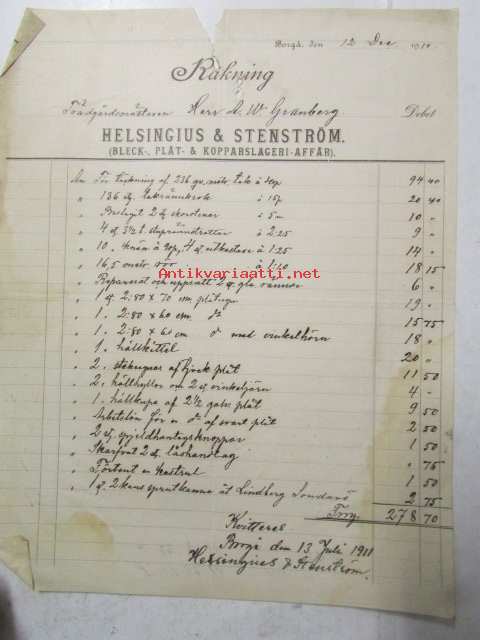 Borgå, den 12 Dec 1910.
Räkning
Trädgårdsmästaren Herr A. W. Granberg Debet
HELSINGIUS & STENSTRÖM.
(BLECK-, PLÅT- & KOPPARSLAGERI-AFFÄR).
An För täckning af 236 qv. mtr tak à 40p 94 40
" 136 st. takrännkrok à 15p 20 40
" Beslagit 2 st skorstenar à 5m 10 "
" 4 st 3½ l. stuprörsratter à 2.25 9 "
" 10. knän à 90p, 4 st utkastare à 1.25 14 "
" 16,5 mtr rör à 1.10 18 15
Antikvariaatti.net
" Reparerat och uppsatt 2 st gla. rännor 6 "
" 1 st 2:80 x 70 cm. plåtugn 19 "
" 1. 2:80 x 60 cm. d:o 15 75
" 1. 2:80 x 60 cm d:o med vinkelhörn 18 "
" 1 hällkittel 20 "
" 2. stekugnar af tjock plåt 11 50
" 2. hällhyllor om 2 st vinkeljärn 4 "
" 1. hällkupa af 2½ galv. plåt 9 50
" Arbetslön för en d:o af svart plåt 2 50
" 2 st. spjeldhantagsknoppar 1 50
" Skarfvat 2 st. låshandtag " 75
" Förtent en kastrul 1 50
" 1 st. 2 kans sprutkanna åt Lindberg 2 75
Trmg. 278 70
Kvitteras
Borgå den 13 Juli 1911
Helsingius & Stenström.